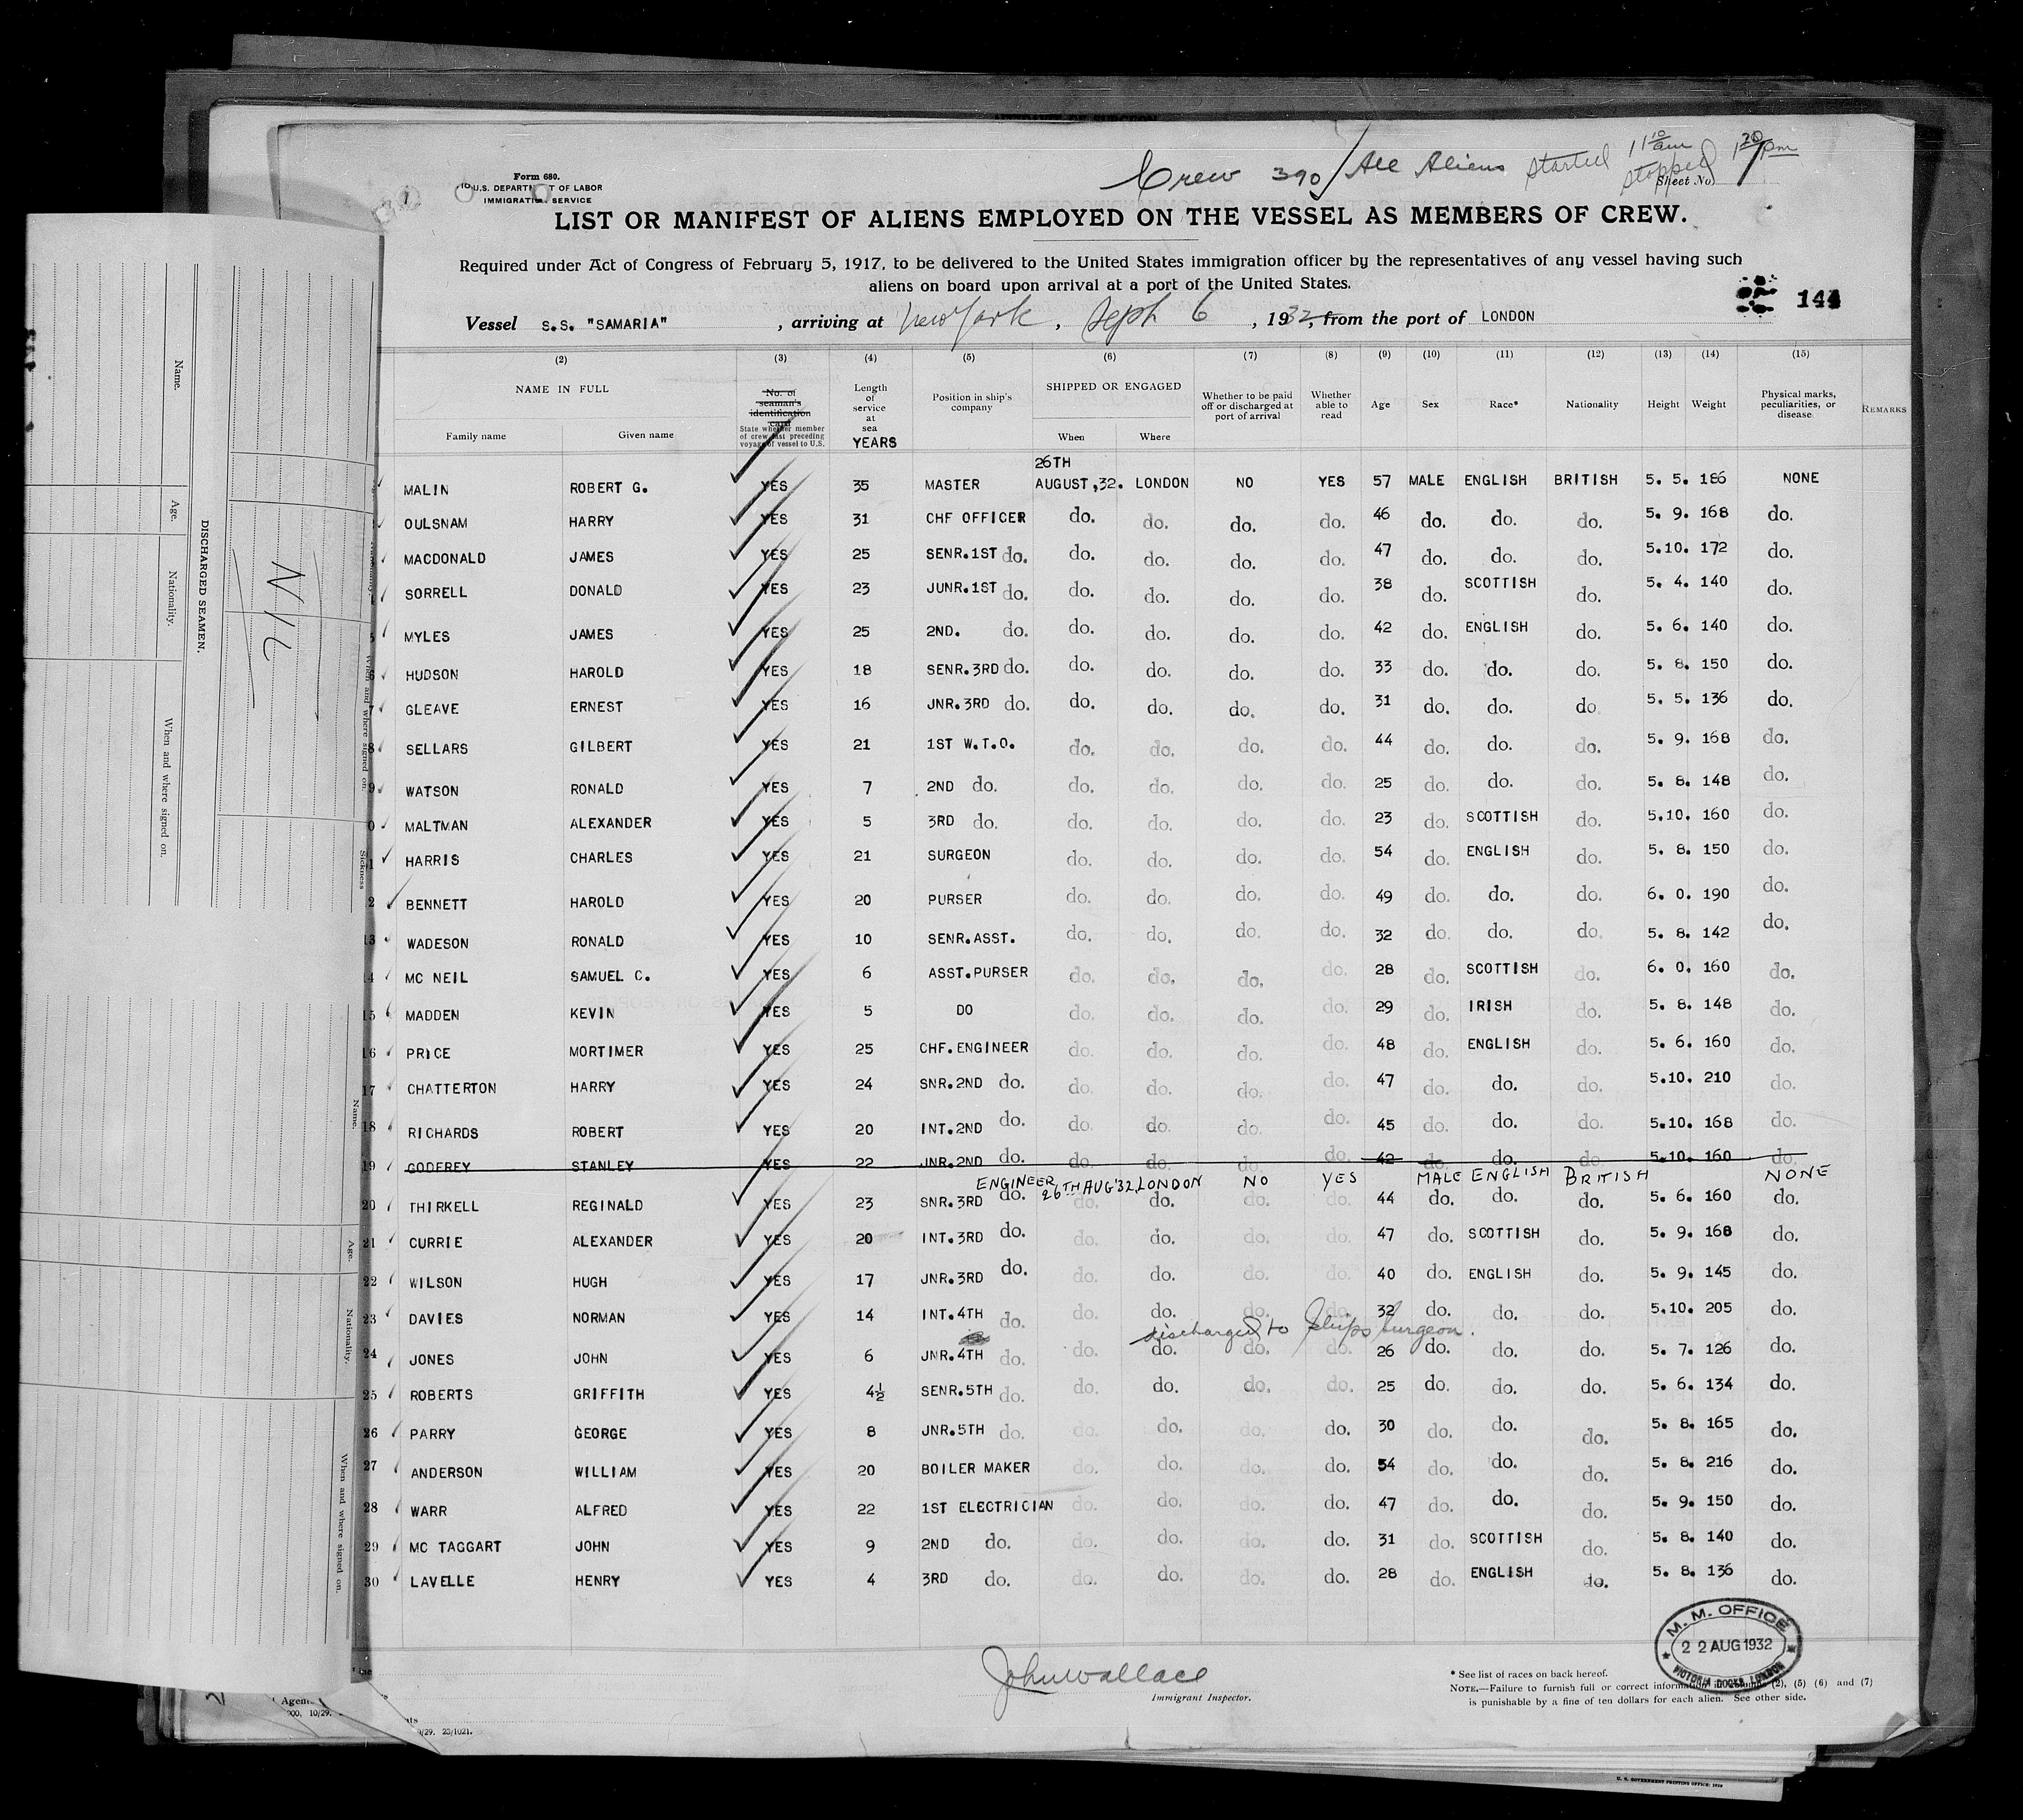 Crew 390/All Aliens Started 11 10 am
stopped 1 20 pm
Form 680.
U.S. DEPARTMENT OF LABOR
IMMIGRATION SERVICE
Sheet No. 1
LIST OR MANIFEST OF ALIENS EMPLOYED ON THE VESSEL AS MEMBERS OF CREW.
Required under Act of Congress of February 5, 1917, to be delivered to the United States immigration officer by the representatives of any vessel having such
aliens on board upon arrival at a port of the United States.
144
Vessel S.S. "SAMARIA", arriving at New York, Sept 6, 1932, from the port of LONDON
(2) (3) (4) (5) (6) (7) (8) (9) (10) (11) (12) (13) (14) (15)
NAME IN FULL
Family name Given name
No. of seaman's identification card
State whether member of crew last preceding voyage of vessel to U.S.
Length of service at sea YEARS
Position in ship's company
SHIPPED OR ENGAGED
When Where
Whether to be paid off or discharged at port of arrival
Whether able to read
Age Sex Race* Nationality Height Weight
Physical marks, peculiarities, or disease
REMARKS
26TH
MALIN ROBERT G. YES 35 MASTER AUGUST,32. LONDON NO YES 57 MALE ENGLISH BRITISH 5. 5. 186 NONE
OULSNAM HARRY YES 31 CHF OFFICER do. do. do. do. 46 do. do. do. 5. 9. 168 do.
MACDONALD JAMES YES 25 SENR.1ST do. do. do. do. do. 47 do. do. do. 5.10. 172 do.
SORRELL DONALD YES 23 JUNR.1ST do. do. do. do. do. 38 do. SCOTTISH do. 5. 4. 140 do.
5 MYLES JAMES YES 25 2ND. do. do. do. do. do. 42 do. ENGLISH do. 5. 6. 140 do.
6 HUDSON HAROLD YES 18 SENR.3RD do. do. do. do. do. 33 do. do. do. 5. 8. 150 do.
7 GLEAVE ERNEST YES 16 JNR.3RD do. do. do. do. do. 31 do. do. do 5. 5. 136 do.
8 SELLARS GILBERT YES 21 1ST W.T.O. do. do. do. do. 44 do. do. do. 5. 9. 168 do.
9 WATSON RONALD YES 7 2ND do. do. do. do. do. 25 do. do. do. 5. 8. 148 do.
0 MALTMAN ALEXANDER YES 5 3RD do. do. do. do. do. 23 do. SCOTTISH do. 5.10. 160 do.
1 HARRIS CHARLES YES 21 SURGEON do. do. do. do. 54 do. ENGLISH do. 5. 8. 150 do.
2 BENNETT HAROLD YES 20 PURSER do. do. do. do. 49 do. do. do. 6. 0. 190 do.
13 WADESON RONALD YES 10 SENR.ASST. do. do. do. do. 32 do. do. do. 5. 8. 142 do.
14 MC NEIL SAMUEL C. YES 6 ASST.PURSER do. do. do. do. 28 do. SCOTTISH do. 6. 0. 160 do.
15 MADDEN KEVIN YES 5 DO do. do. do. do. 29 do. IRISH do. 5. 8. 148 do.
16 PRICE MORTIMER YES 25 CHF.ENGINEER do. do. do. do. 48 do. ENGLISH do. 5. 6. 160 do.
17 CHATTERTON HARRY YES 24 SNR.2ND do. do. do. do. do. 47 do. do. do. 5.10. 210 do.
18 RICHARDS ROBERT YES 20 INT.2ND do. do. do. do. do. 45 do. do. do. 5.10. 168 do.
19 GODFREY STANLEY YES 22 JNR.2ND do. do. do. do. do. 42 do. do. do 5.10. 160 do.
ENGINEER 26TH AUG'32 LONDON NO YES MALE ENGLISH BRITISH NONE
20 THIRKELL REGINALD YES 23 SNR.3RD do. do. do. do. do. 44 do. do. do. 5. 6. 160 do.
21 CURRIE ALEXANDER YES 20 INT.3RD do. do. do. do. do. 47 do. SCOTTISH do. 5. 9. 168 do.
22 WILSON HUGH YES 17 JNR.3RD do. do. do. do. do. 40 do. ENGLISH do. 5. 9. 145 do.
23 DAVIES NORMAN YES 14 INT.4TH do. do. do. do. do. 32 do. do. do. 5.10. 205 do.
discharged to Ships Surgeon.
24 JONES JOHN YES 6 JNR.4TH do. do. do. do. do. 26 do. do. do. 5. 7. 126 do.
25 ROBERTS GRIFFITH YES 4½ SENR.5TH do. do. do. do. do. 25 do. do. do. 5. 6. 134 do.
26 PARRY GEORGE YES 8 JNR.5TH do. do. do. do. do. 30 do. do. do. 5. 8. 165 do.
27 ANDERSON WILLIAM YES 20 BOILER MAKER do. do. do. do. 54 do. do. do. 5. 8. 216 do.
28 WARR ALFRED YES 22 1ST ELECTRICIAN do. do. do. do. 47 do. do. do. 5. 9. 150 do.
29 MC TAGGART JOHN YES 9 2ND do. do. do. do. do. 31 do. SCOTTISH do. 5. 8. 140 do.
30 LAVELLE HENRY YES 4 3RD do. do. do. do. do. 28 do. ENGLISH do. 5. 8. 136 do.
John Wallace
Immigrant Inspector.
M. M. OFFICE
22 AUG 1932
VICTORIA DOCKS, LONDON
* See list of races on back hereof.
NOTE.—Failure to furnish full or correct information (2), (5) (6) and (7)
is punishable by a fine of ten dollars for each alien. See other side.
U. S. GOVERNMENT PRINTING OFFICE: 1929
DISCHARGED SEAMEN.
Name.
Age.
Nationality.
When and where signed on.
NIL
When and where signed on.
Sickness
Name.
Age.
Nationality.
When and where signed on.
Agen
000, 10/29.
9/29. 23/1021.